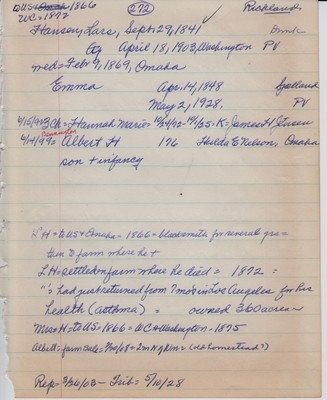 US+Omaha 1866 272 Richland
WC=1872
Hansen, Lars, Sept. 29, 1841 Dmk
April 18, 1903, Washington PV
med=Feb 9, 1869, Omaha
Emma Apr. 14, 1848 Sjelland
May 2, 1928, PV
3 Ch=Hannah Marie= 10/24/72-19/1/25=K=James H Jensen
6/14/99= Albert H 176 Hedda E Nelson, Omaha
son + infancy
LH=to US+Omaha=1866=blacksmith for several yrs=
then to farm where he +
LH=settled on farm where he died = 1872 =
"=had just returned from 7 mos in Los Angeles for his
health (asthma) = owned 360 acres
Mrs H=to US=1866=WC+Washington=1875
Albert=farm sale=2/10/08=2m N of Knn= (old homestead?)
Rep=4/24/03-Trib=5/10/28